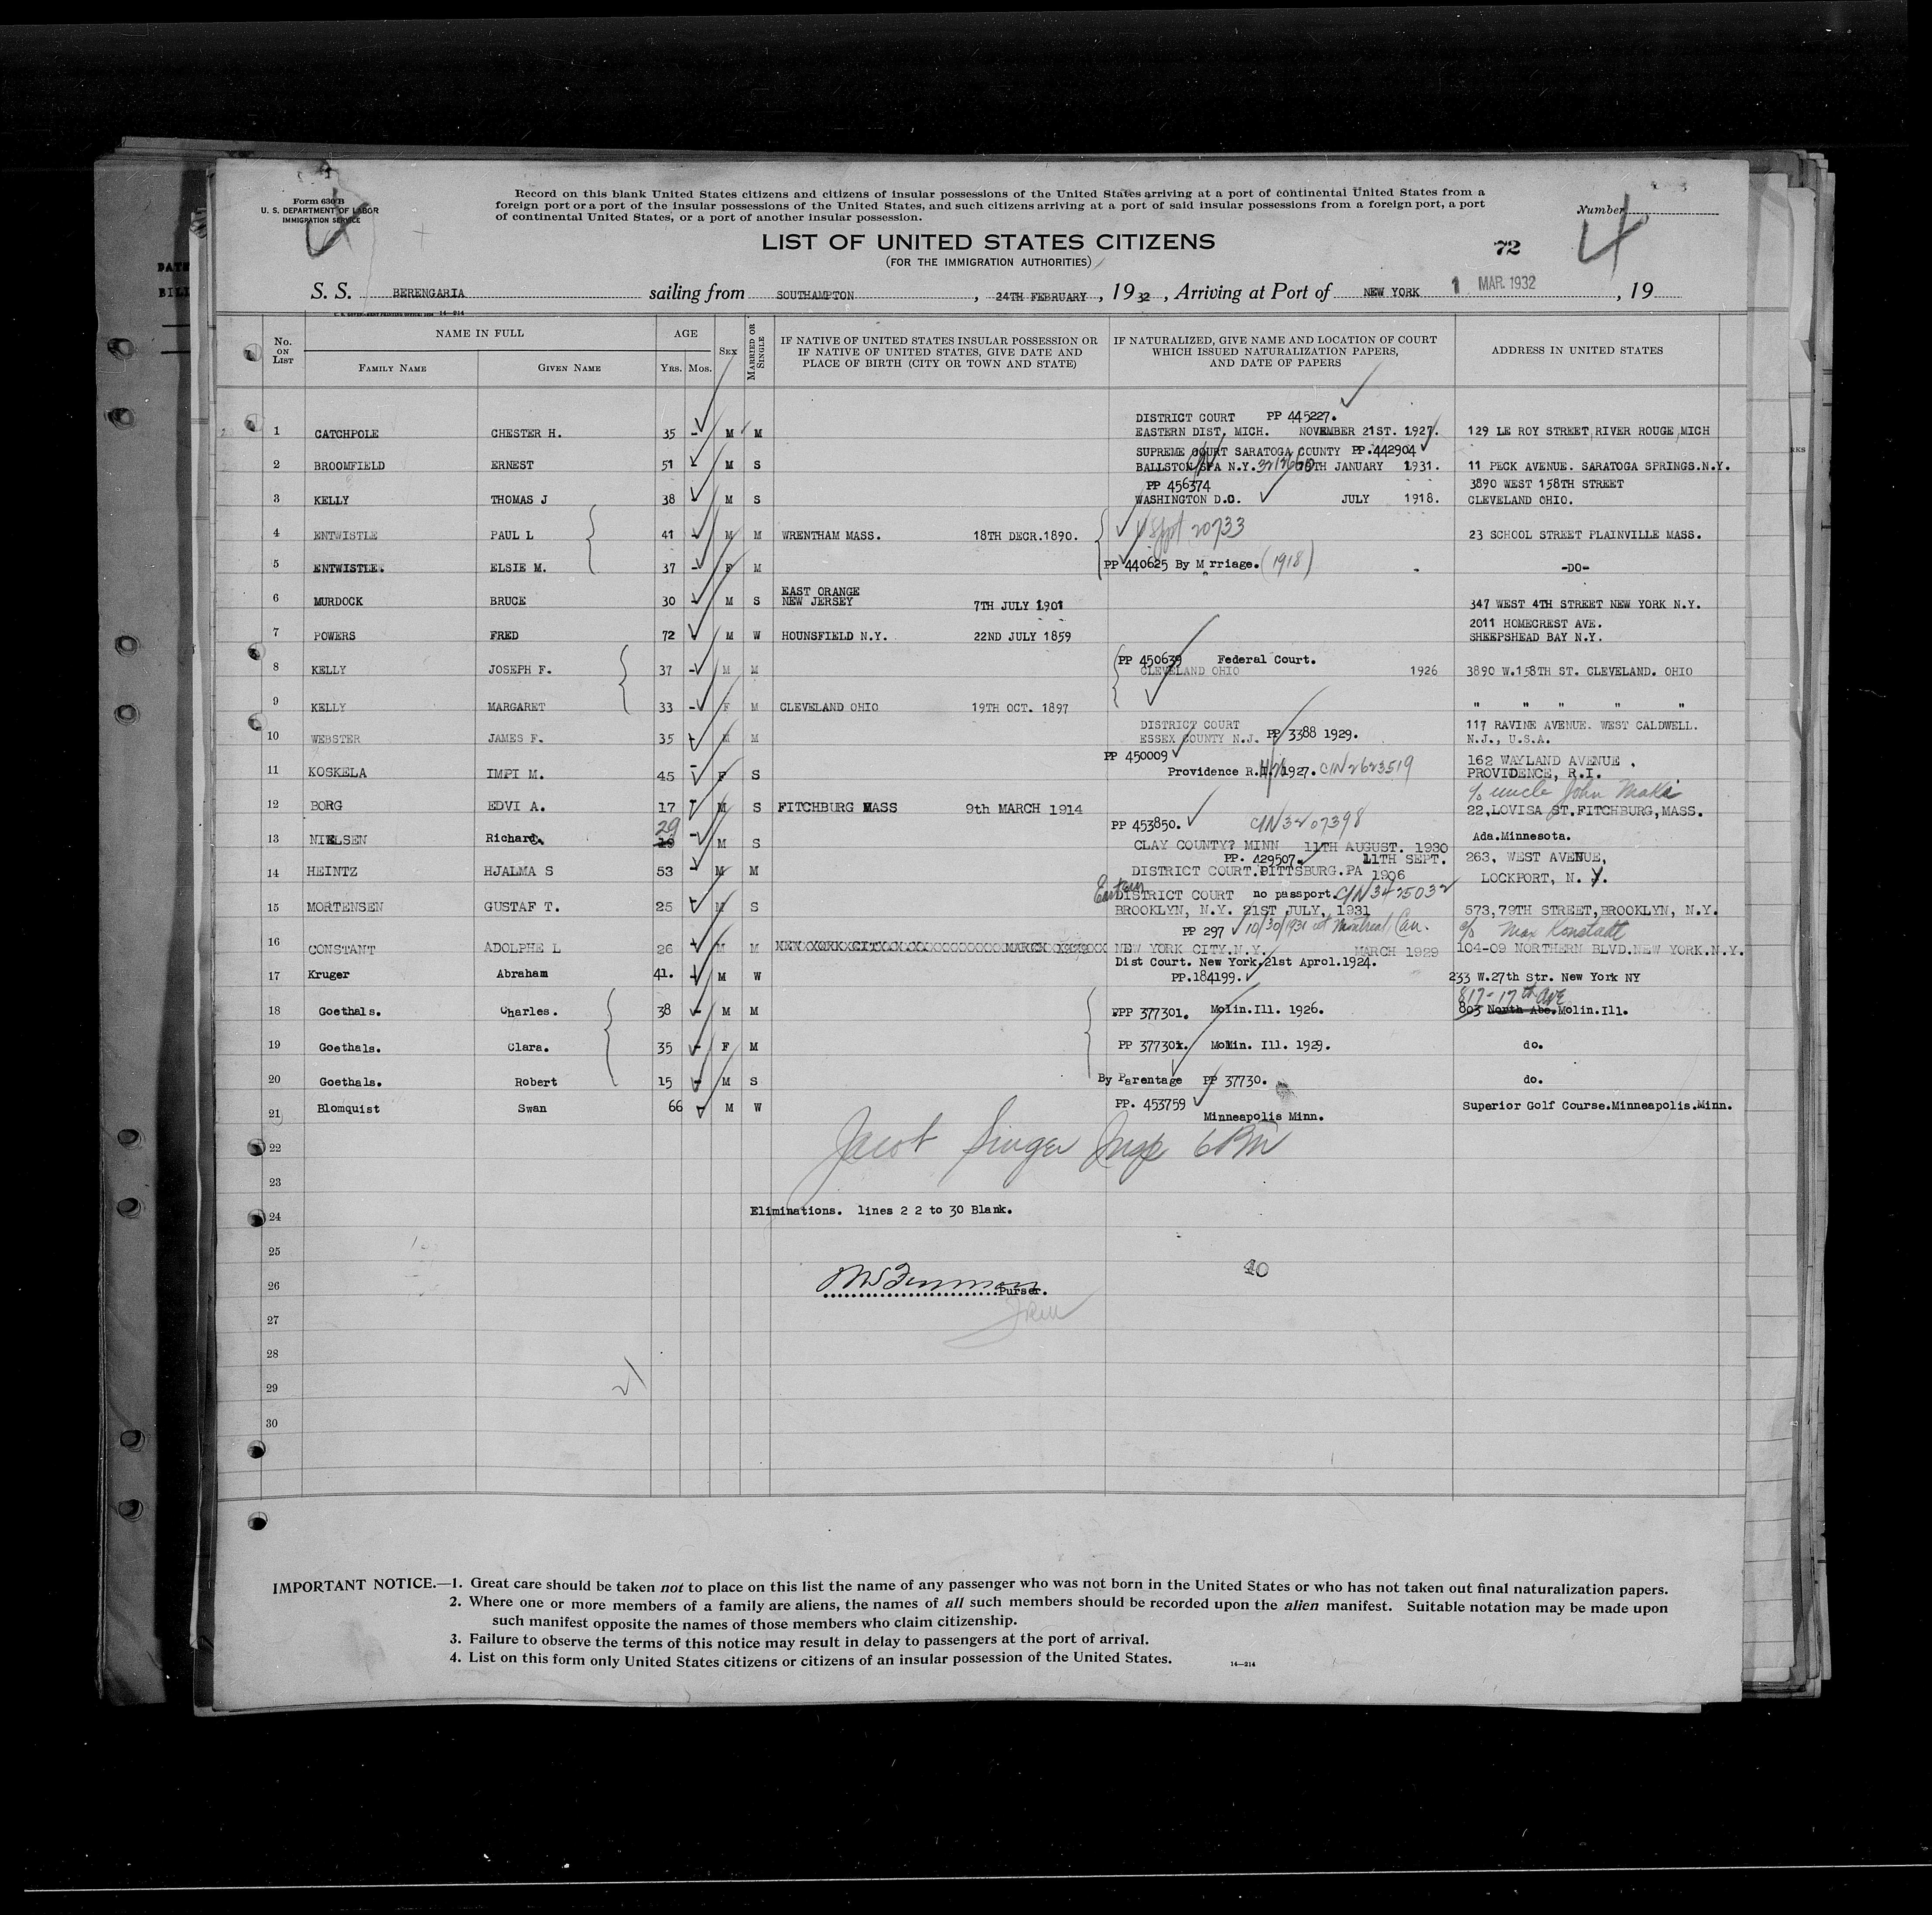 Form 630 B
U. S. DEPARTMENT OF LABOR
IMMIGRATION SERVICE
Record on this blank United States citizens and citizens of insular possessions of the United States arriving at a port of continental United States from a
foreign port or a port of the insular possessions of the United States, and such citizens arriving at a port of said insular possessions from a foreign port, a port
of continental United States, or a port of another insular possession.
Number 4
LIST OF UNITED STATES CITIZENS
(FOR THE IMMIGRATION AUTHORITIES)
72
S. S. BERENGARIA sailing from SOUTHAMPTON, 24TH FEBRUARY, 1932, Arriving at Port of NEW YORK 1 MAR. 1932, 19
No. ON LIST
NAME IN FULL
FAMILY NAME GIVEN NAME
AGE
YRS. MOS.
SEX
MARRIED OR SINGLE
IF NATIVE OF UNITED STATES INSULAR POSSESSION OR
IF NATIVE OF UNITED STATES, GIVE DATE AND
PLACE OF BIRTH (CITY OR TOWN AND STATE)
IF NATURALIZED, GIVE NAME AND LOCATION OF COURT
WHICH ISSUED NATURALIZATION PAPERS,
AND DATE OF PAPERS
ADDRESS IN UNITED STATES
DISTRICT COURT PP 445227.
1 CATCHPOLE CHESTER H. 35 - M M EASTERN DIST. MICH. NOVEMBER 21ST. 1927. 129 LE ROY STREET, RIVER ROUGE, MICH
SUPREME COURT SARATOGA COUNTY PP.442904
2 BROOMFIELD ERNEST 51 - M S BALLSTON SPA N.Y. JANUARY 1931. 11 PECK AVENUE. SARATOGA SPRINGS.N.Y.
PP 456374 3890 WEST 158TH STREET
3 KELLY THOMAS J 38 - M S WASHINGTON D.C. JULY 1918. CLEVELAND OHIO.
4 ENTWISTLE PAUL L 41 - M M WRENTHAM MASS. 18TH DECR.1890. 20733 23 SCHOOL STREET PLAINVILLE MASS.
5 ENTWISTLE. ELSIE M. 37 - F M PP 440625 By M rriage. (1918) -DO-
EAST ORANGE
6 MURDOCK BRUCE 30 - M S NEW JERSEY 7TH JULY 1901 347 WEST 4TH STREET NEW YORK N.Y.
2011 HOMECREST AVE.
7 POWERS FRED 72 M W HOUNSFIELD N.Y. 22ND JULY 1859 SHEEPSHEAD BAY N.Y.
PP 450639 Federal Court.
8 KELLY JOSEPH F. 37 - M M CLEVELAND OHIO 1926 3890 W.158TH ST. CLEVELAND. OHIO
9 KELLY MARGARET 33 - F M CLEVELAND OHIO 19TH OCT. 1897 " " " " "
DISTRICT COURT 117 RAVINE AVENUE. WEST CALDWELL.
10 WEBSTER JAMES F. 35 - M M ESSEX COUNTY N.J. PP 3388 1929. N.J., U.S.A.
PP 450009 162 WAYLAND AVENUE .
11 KOSKELA IMPI M. 45 - F S Providence R.I. 1927. CIN 2623519 PROVIDENCE, R.I.
c/o uncle John Maki
12 BORG EDVI A. 17 - M S FITCHBURG MASS 9th MARCH 1914 22,LOVISA ST.FITCHBURG,MASS.
29 PP 453850. CIN 3207398
13 NIELSEN Richard. - M S CLAY COUNTY? MINN 11TH AUGUST. 1930 Ada.Minnesota.
PP. 429507. 11TH SEPT. 263, WEST AVENUE,
14 HEINTZ HJALMA S 53 - M M DISTRICT COURT.PITTSBURG.PA 1906 LOCKPORT, N. Y.
Eastern DISTRICT COURT no passport. CIN 3425032
15 MORTENSEN GUSTAF T. 25 - M S BROOKLYN, N.Y. 21ST JULY, 1931 573,79TH STREET,BROOKLYN, N.Y.
PP 297 10/30/1931 at Montreal, Can. c/o Max Konstadt
16 CONSTANT ADOLPHE L 26 - M M NEW YORK CITY.N.Y. MARCH 1929 104-09 NORTHERN BLVD.NEW YORK.N.Y.
Dist Court. New York.21st Aprol.1924.
17 Kruger Abraham 41. - M W PP.184199. 233 W.27th Str. New York NY
817-17th Ave
18 Goethals. Charles. 38 - M M PP 377301. Molin.Ill. 1926. 803 North Ave.Molin.Ill.
19 Goethals. Clara. 35 - F M PP 37730. Molin. Ill. 1929. do.
20 Goethals. Robert 15 - M S By Parentage PP 37730. do.
21 Blomquist Swan 66 - M W PP. 453759 Superior Golf Course.Minneapolis.Minn.
Minneapolis Minn.
22 Jacob Singer Insp
23
24 Eliminations. lines 2 2 to 30 Blank.
25
40
26 Purser.
27
28
29
30
IMPORTANT NOTICE.—1. Great care should be taken not to place on this list the name of any passenger who was not born in the United States or who has not taken out final naturalization papers.
2. Where one or more members of a family are aliens, the names of all such members should be recorded upon the alien manifest. Suitable notation may be made upon
such manifest opposite the names of those members who claim citizenship.
3. Failure to observe the terms of this notice may result in delay to passengers at the port of arrival.
4. List on this form only United States citizens or citizens of an insular possession of the United States.
14—214